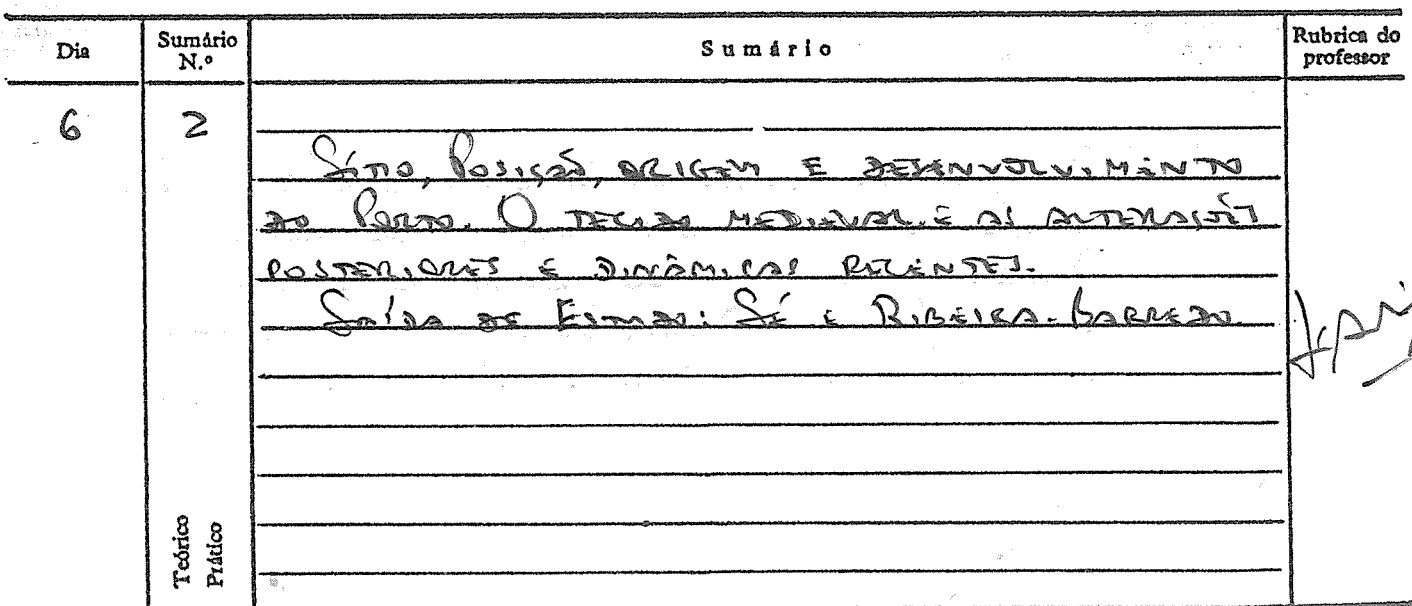 Dia Sumário N.º Sumário Rubrica do professor
6 2
Sítio, Posição, ORIGEM E DESENVOLVIMENTO
DO PORTO. O TECIDO MEDIEVAL E AS ALTERAÇÕES
POSTERIORES E DINÂMICAS RECENTES.
SAÍDA DE ESTUDO: SÉ E RIBEIRA-BARREDO
Teórico
Prático